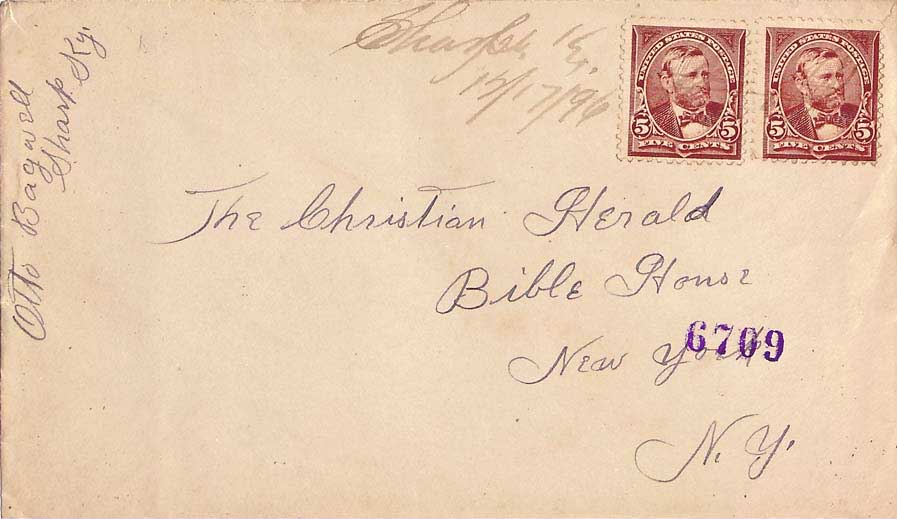 Otto Bagwell
Sharp Ky.
Sharp Ky.
12/17/96
UNITED STATES POSTAGE
5 5
FIVE CENTS
UNITED STATES POSTAGE
5 5
FIVE CENTS
The Christian Herald
Bible House
New York
6709
N.Y.